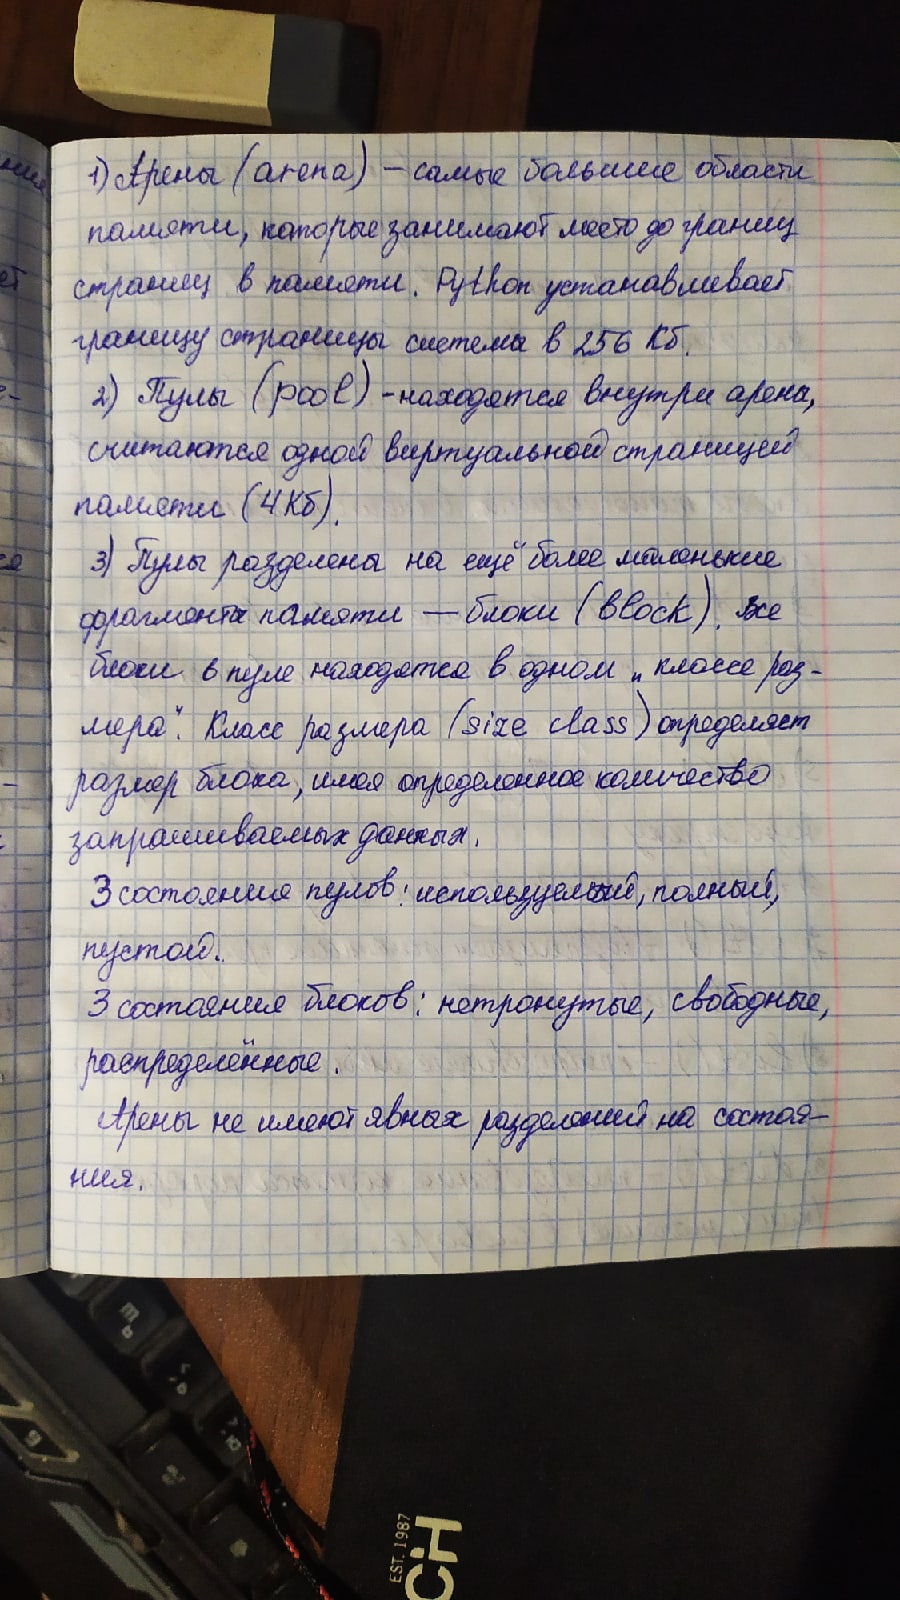 1) Арены (arena) – самые большие области
памяти, которые занимают место до границ
страниц в памяти. Python устанавливает
границу страницы системы в 256 Кб.
2) Пулы (pool) – находятся внутри арена,
считаются одной виртуальной страницей
памяти (4Кб).
3) Пулы разделена на ещё более маленькие
фрагмента памяти — блоки (block). Все
блоки в пуле находятся в одном „классе раз-
мера“. Класс размера (size class) определяет
размер блока, имея определенное количество
запрашиваемых данных.
3 состояния пулов: используемый, полный,
пустой.
3 состояния блоков: нетронутые, свободные,
распределённые.
Арены не имеют явных разделений на состоя-
ния.
EST. 1987